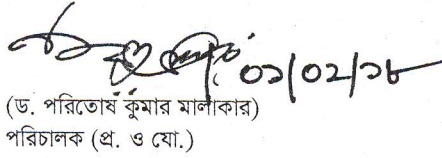 ০১/০২/১৮
(ড. পরিতোষ কুমার মালাকার)
পরিচালক (প্র. ও যো.)